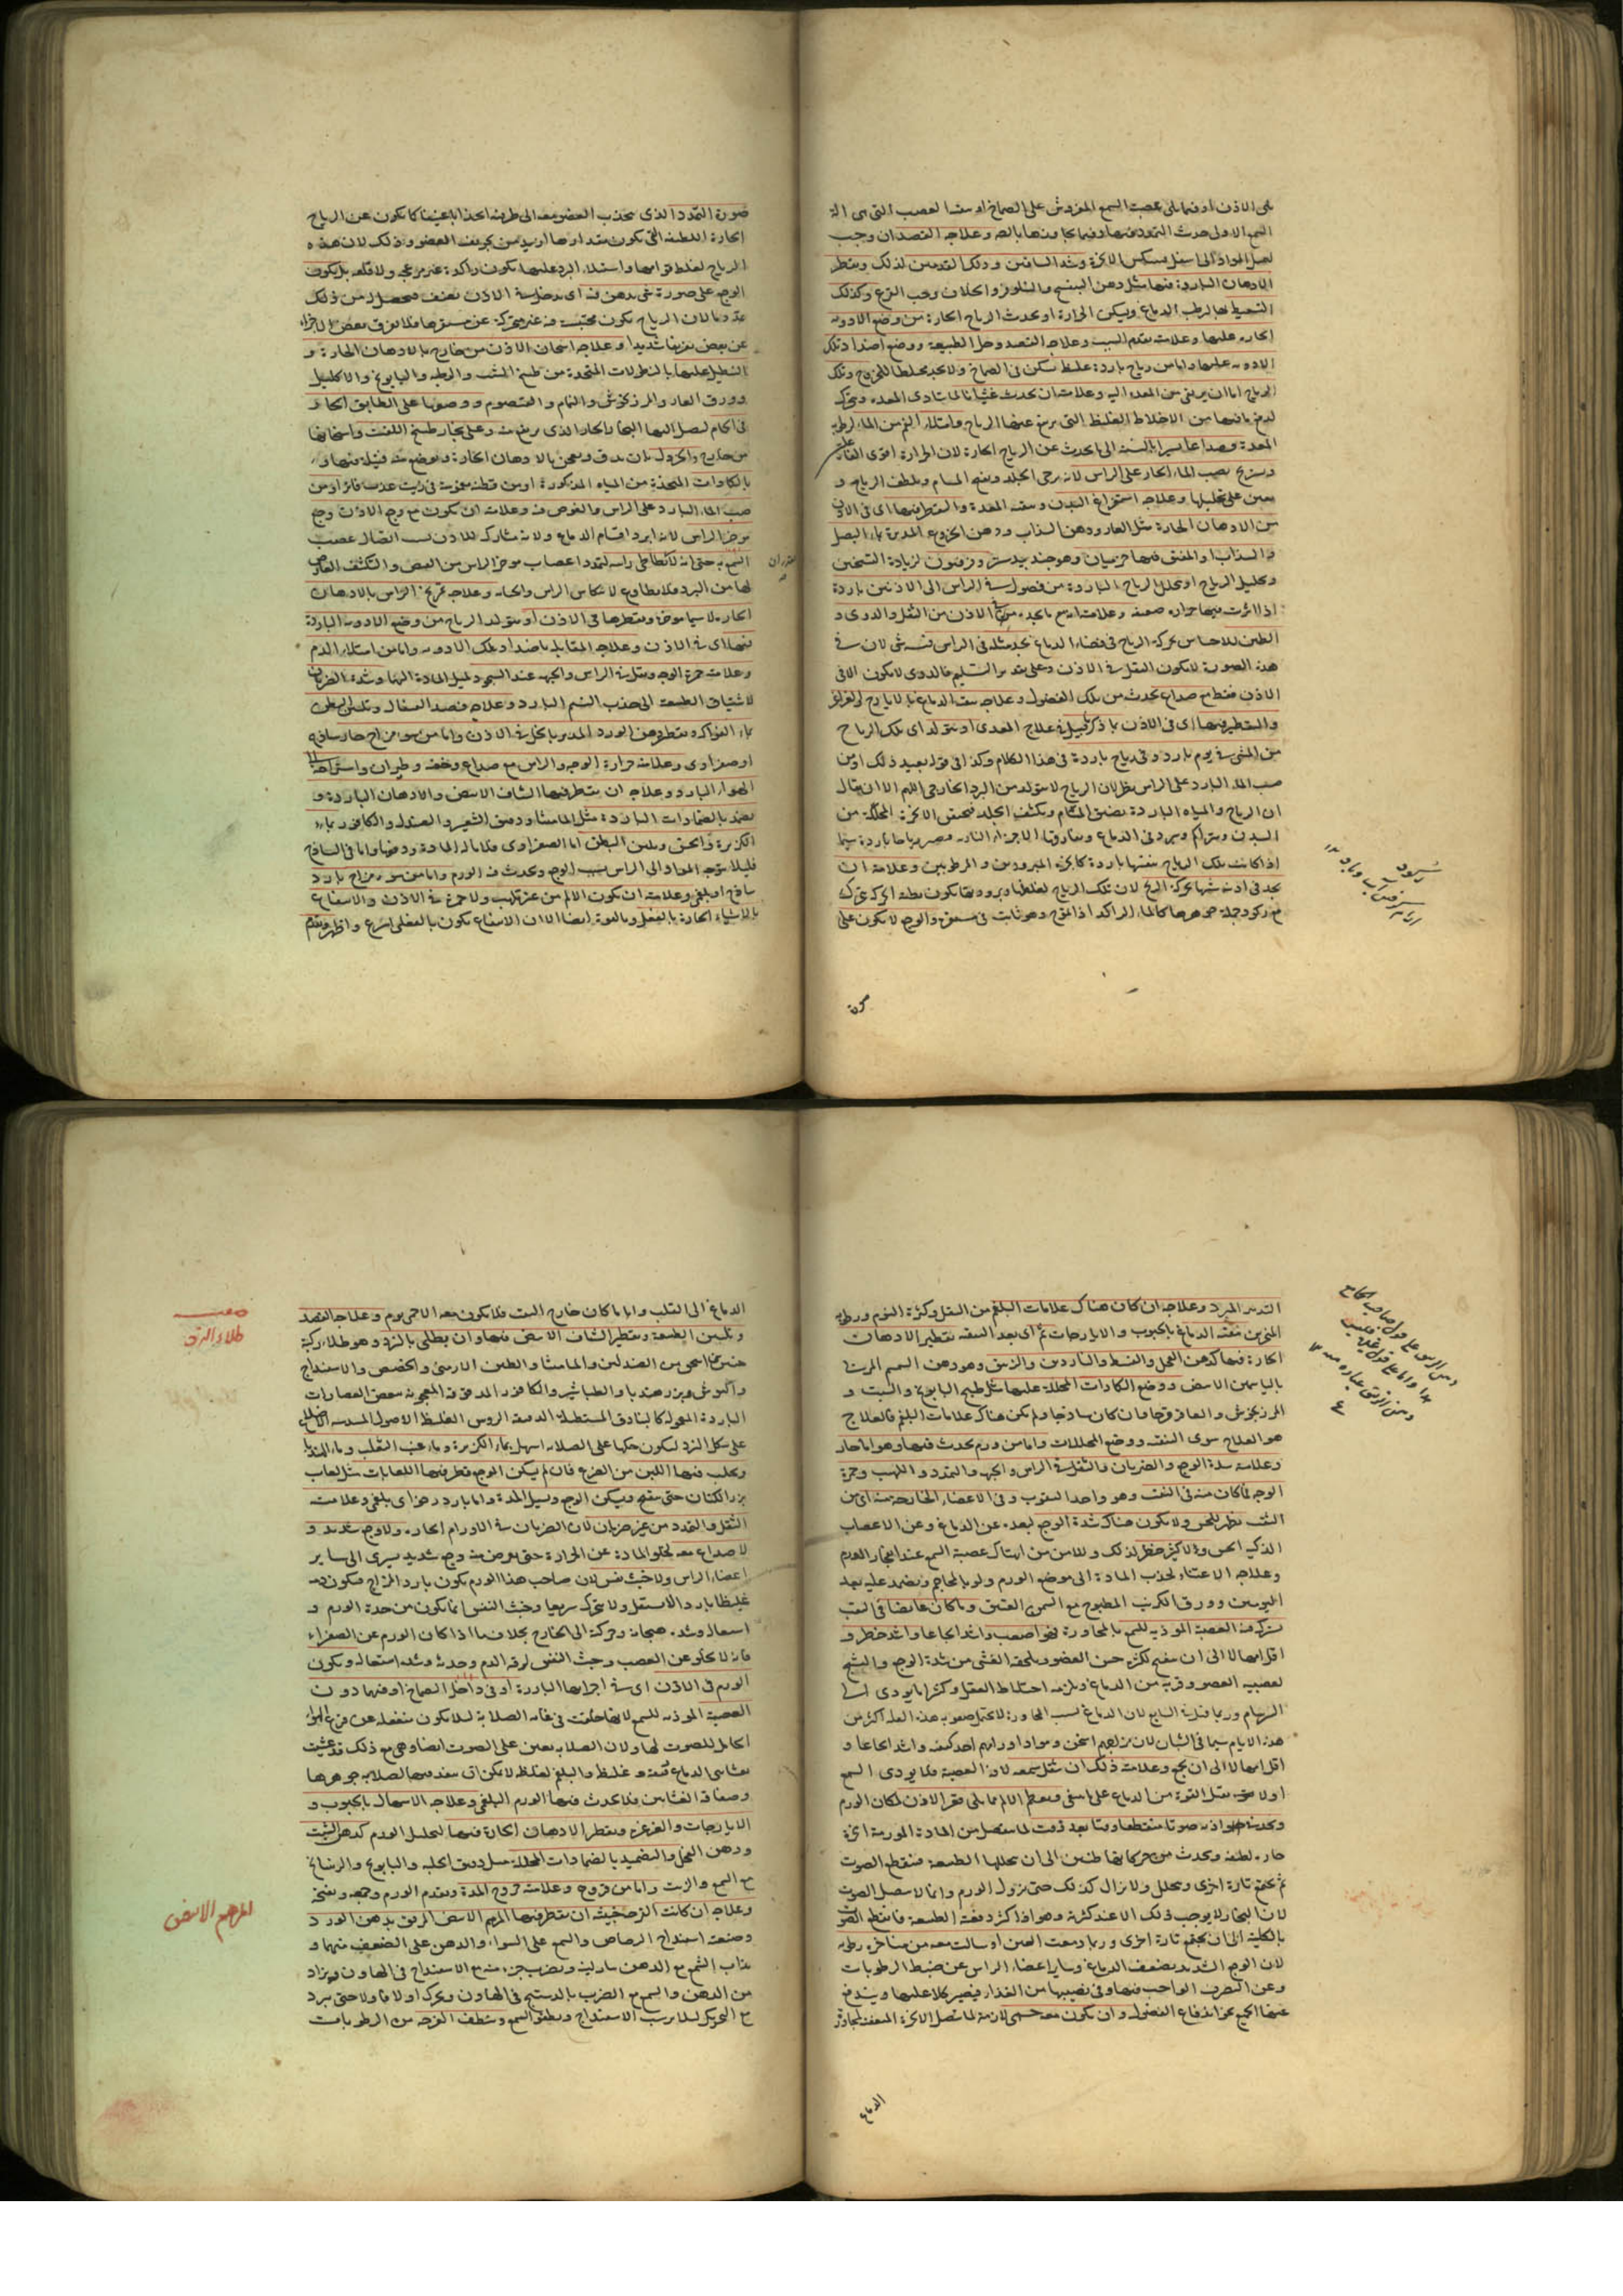 يلي الاذن او فيما يلي عصبة السمع المفروش على الصماخ او سعة العصب التي هي الة
السمع الاولى حدث التمدد فيها وفيما يجاورها بالصـ وعلاجه الفصد ان وجب
المواد الى اسفل وتسكين الابخرة وشد الساقين ودلك القدمين لذلك وتقطر
الادهان الباردة فيها مثل دهن البنفسج والنيلوفر والخلاف وحب القرع وكذلك
التسعيط بها لترطب الدماغ وتسكين الحرارة او تحدث الرياح الحارة من وضع الادوية
الحارة عليها وعلامته تقدم السبب وعلاجه الفصد وحل الطبيعة ووضع اضداد تلك
الادوية عليها واما من رياح باردة غليظة تسكن في الصماخ ولا تجد مخلصا للخروج وتلك
الرياح اما ان يرتقى من المعدة اليه وعلامته ان يحدث غثيانا لما يتاذى المعدة وتتحرك
لدفع ما فيها من الاخلاط الغليظة التي يرتفع عنها الرياح وامتلاء الفم من الماء لرطوبة
المعدة وصداعا يسيرا بالنسبة الى ما يحدث عن الرياح الحارة لان الحرارة اقوى
ويستريح بصب الماء الحار على الراس لانه يرخى الجلد ويفتح المسام ويلطف الرياح و
يعين على تحليلها وعلاجه استفراغ البدن وتنقية المعدة والتقطير فيها اي في الاذن
من الادهان الحارة مثل الغار ودهن السذاب ودهن الخروع المدبرة بماء البصل
والسذاب والمفتق فيها خرميان وهو جندبيدستر وفرفيون لزيادة التسخين
وتحليل الرياح او تحلل الرياح الباردة من فضول في الراس الى الاذنين باردة
اذا اثرت فيها حرارة ضعيفة وعلامته انه مع ما يجده في الاذن من الثقل والدوى و
الطنين للاحساس بحركة الرياح في فضاء الدماغ يجد مثله في الراس نفسه شى لان في
هذه الصورة لا يكون الثقل في الاذن وعلى تقدير التسليم فالدوى لا يكون الا في
الاذن فقط مع صداع يحدث من تلك الفضول وعلاجه تنقية الدماغ بالايارج
والتقطير فيها اي في الاذن ما ذكر قبيل في علاج المعدى او يتولد اي تلك الرياح
من المشى في يوم بارد وفي رياح باردة في هذا الكلام وكذا في قوله بعيد ذلك او من
صب الماء البارد على الراس نظر لان الرياح لا يتولد من البرد الخارجي اللهم الا ان يقال
ان الرياح والمياه الباردة يضيق المسام ويكثف الجلد فتحتقن الابخرة المتحللة من
البدن ويتراكم ويبرد في الدماغ ويفارقها الاجزاء النارية فيصير رياحا باردة سيما
اذا كانت تلك الرياح بنفسها باردة كابخرة المبرودين والمرطوبين وعلامته ان
يجد في اذنه شبها بحركة الريح لان تلك الرياح لغلظها وبرودتها يكون بطئة الحركة
مع ركود جملة جوهرها كالماء الراكد اذا تموج وهو ثابت في مستقره والوجع لا يكون على
صورة
صورة التمدد الذي يجذب العضو معه الى طرفيه انجذابا عنيفا كما يكون عن الرياح
الحارة اللطيفة التي يكون مقدارها ازيد من تجويف العضو وذلك لان هذه
الرياح لغلظ قوامها واستيلاء البرد عليها يكون راكدة غير مزعجة ولا قلقة بل يكون
الوجع على صورة شى يدهن فيه اي يدخل في الاذن بعنف فيحصل من ذلك
تمدد ما لان الرياح يكون محتبسة فيه غير متحركة عن مستقرها فلا يفرق بعض الاجزاء
عن بعض تفريقا شديدا وعلاجه اسخان الاذن من خارج بالادهان الحارة و
التنطيل عليها بالنطولات المتخذة من طبيخ الشبت والرطبة والبابونج والاكليل
وورق الغار والمرزنجوش والنمام والقيصوم ووضعها على الطابق الحار
في الحمام ليصل اليها البخار الحار الذي يرتفع منه وعلى بخار طبيخ اللفت واسخانها
من خارج والخردل بان يدق ويعجن بالادهان الحارة ويوضع منه فتيلة فيها و
بالكمادات المتخذة من المياه المذكورة او من قطنة مغموسة في زيت عذب فاتر او من
صب الماء البارد على الراس والغوص فيه وعلامته ان يكون مع وجع الاذن وجع
موخر الراس لانه ابرد اقسام الدماغ ولانه مشارك للاذن بسبب اتصال عصب
السمع به حتى انه لا يطأطى راسه لتمدد اعصاب موخر الراس من القبض والتكثف العارض
لها من البرد فلا يطاوع لانتكاس الراس وانحنائه وعلاجه تمريخ الراس بالادهان
الحارة لا سيما موخره وتقطيرها في الاذن او يتولد الرياح من وضع الادوية الباردة
فيها اي في الاذن وعلاجه المقابلة باضداد تلك الادوية واما من امتلاء الدم
وعلامته حمرة الوجه وثقل في الراس والجبهة عند السجود لميل المادة اليها وشدة الضربان
لاشتياق الطبيعة الى جذب النسيم البارد وعلاجه فصد القيفال وتليين البطن
بماء الفواكه وتقطير دهن الورد المدبر بالخل في الاذن واما من سوء مزاج حار ساذج
او صفراوى وعلامته حرارة الوجه والراس مع صداع وخفة وطيران واستراحة الى
الهواء البارد وعلاجه ان يقطر فيها الشياف الابيض والادهان الباردة و
يضمد بالضمادات الباردة مثل الماميثا ودقيق الشعير والصندل والكافور بماء
الكزبرة والحقن وتليين البطن اما الصفراوى فلامالة المادة ودفعها واما في الساذج
فلئلا يتوجه المواد الى الراس بسبب الوجع ويحدث فيه الورم واما من سوء مزاج بارد
ساذج او بلغمى وعلامته ان يكون الالم من غير تلهب ولا حمرة في الاذن والانتفاع
بالاشياء الحارة بالفعل وبالقوة ايضا الا ان الانتفاع يكون بالفعلى اسرع واظهر وتقدم
التدبير المبرد وعلاجه ان كان هناك علامات البلغم من الثقل وكثرة النوم ورطوبة
المنخرين تنقية الدماغ بالحبوب والايارجات ثم اي بعد التنقية تقطير الادهان
الحارة فيها كدهن الفجل والقسط والناردين والزنبق وهو دهن السمسم المربا
بالياسمين الابيض ووضع الكمادات المحللة عليها مثل طبيخ البابونج والشبت و
المرزنجوش والعاقرقرحا وان كان ساذجا ولم يكن هناك علامات البلغم فالعلاج
هو العلاج سوى التنقية ووضع المحللات واما من ورم يحدث فيها وهو اما حار
وعلامته شدة الوجع والضربان والثقل في الراس والجبهة والتمدد واللهب وحمرة
الوجه فما كان منه في الثقب وهو واحد الثقوب وفي الاعضاء الخارجة منه اي من
الثقب يظهر للحس ولا يكون هناك شدة الوجع لبعده عن الدماغ وعن الاعصاب
الذكية الحس ولا كثير خطر لذلك وللامن من انهتاك عصبة السمع عند انفجار الورم
وعلاجه الاعتناء لجذب المادة الى موضع الورم ولو بالمحاجم ويضمد عليه بعد
اليومين وورق الكرنب المطبوخ مع السمن العتيق وما كان غائصا في الثقب
يشرك فيه العصبة المودية للسمع بالمجاورة فهو اصعب واشد ايجاعا واشد خطرا و
اقل امهالا الى ان ينفتح لكثرة حس العضو ويلحقه الغشى من شدة الوجع والتشنج
لعصبية العضو وقربه من الدماغ ويلزمه اختلاط العقل وكثيرا ما يودى الى
السرسام وربما قتل في السابع لان الدماغ بسبب المجاورة لا يحتمل صعوبة هذه العلة اكثر من
هذه الايام سيما في الشبان لان مزاجهم اسخن ومواد اورامهم احد كيفية واشد ايجاعا و
اقل امهالا الى ان يجمع وعلامته ذلك ان يثقل سمعه لاذى العصبة فلما يودى السمع
اولا عنه ثقل القوة من الدماغ على ما ينبغى ويعظم الالم مما يلى قعر الاذن لمكان الورم
ويحدث صوتا منقطعا وقتا بعد وقت لما ينفصل من المادة المورمة ابخرة
حارة لطيفة ويحدث من حركاتها طنين الى ان يحللها الطبيعة فينقطع الصوت
ثم يجتمع تارة اخرى ويحلل ولا يزال كذلك حتى يزول الورم وانما لا يتصل الصوت
لان البخار لا يوجب ذلك الا عند كثرته وهو اذا كثر دفعته الطبيعة فانقطع الصوت
بالكلية الى ان يجتمع تارة اخرى وربما دمعت العين او سالت معه من مناخره رطوبة
لان الوجع الشديد يضعف الدماغ وساير اعضاء الراس عن ضبط الرطوبات
وعن التصرف الواجب فيها وفي نصيبها من الغذاء فيصير كلا عليها ويندفع
عنها الجميع نحو اندفاع الفضول وان يكون معه حمى لازمة لما يتصل الابخرة المتعفنة لمجاورة
الدماغ
الدماغ الى القلب واما ما كان خارج الثقب فلا يكون معه الا حمى يوم وعلاجه الفصد
وتليين الطبيعة وتقطير الشياف الابيض فيها وان يطلى بالزرد وهو طلاء ركبه
حنين بن اسحق من الصندلين والماميثا والطين الارمنى والحضض والاسفيداج
والبوش وبزر هندبا والطباشير والكافور المدقوقة المعجونة ببعض العصارات
الباردة المعمولة كالبنادق المستطيلة الدقيقة الروس الغليظة الاصول المسدسة الاضلاع
على شكل الزرد ليكون حكها على الصلاية اسهل بماء الكزبرة وماء عنب الثعلب وماء الهندبا
ويحلب فيها اللبن من الضرع فان لم يسكن الوجع قطر فيها اللعابات مثل لعاب
بزر الكتان حتى ينفتح ويسكن الوجع ويسيل المدة واما بارد رخو اي بلغمى وعلامته
الثقل والتمدد من غير ضربان لان الضربان في الاورام الحارة ولا وجع شديد و
لا صداع معه لخلو المادة عن الحرارة حتى يعرض منه وجع شديد يسرى الى ساير
اعضاء الراس ولا خبث نفس لان صاحب هذا الورم يكون بارد المزاج فيكون دمه
غليظا باردا لا يشتعل ولا يتحرك سريعا وخبث النفس انما يكون من حدة الدم و
اشتعاله وشدة هيجانه وحركته الى الخارج بخلاف ما اذا كان الورم عن الصفراء
فانه لا يخلو عن الغضب وخبث النفس لرقة الدم وحدته وشدة اشتعاله ويكون
الورم في الاذن اي في اجزائها البارزة او في داخل الصماخ او فيها دون
العصبة المودية للسمع لانها خلقت في غاية الصلابة لئلا يكون منفعلة عن قرع الهواء
الحامل للصوت لها ولان الصلابة يعين على الصوت ايضا وهى مع ذلك قد غشيت
بغشائى الدماغ رقيقه وغليظه والبلغم لغلظه لا يمكن ان ينفذ فيها لصلابة جوهرها
وصفاقة الغشائين فلا يحدث فيها الورم البلغمى وعلاجه الاسهال بالحبوب و
الايارجات والغرغرة وتقطير الادهان الحارة فيها لتحليل الورم كدهن الشبت
ودهن الفجل والتضميد بالضمادات المحللة مثل دقيق الحلبة والبابونج والريتيانج
مع الشمع والزيت واما من قروح وعلامته خروج المدة وتقدم الورم وجمعه ونضجه
وعلاجه ان كانت القرحة خبيثة ان يقطر فيها المرهم الابيض المرقق بدهن الورد
وصنعته اسفيداج الرصاص والشمع على السواء والدهن على الضعف منهما و
يذاب الشمع مع الدهن بنار لينة ويضرب جزء منه مع الاسفيداج في الهاون ويزاد
من الدهن والشمع مع الضرب بالدستج في الهاون ويحرك اولا فاولا حتى يبرد
مع التحريك لئلا يرسب الاسفيداج ويطفو الشمع وينظف القرحة من الرطوبات
صفة
طلاء الزرد
المرهم الابيض